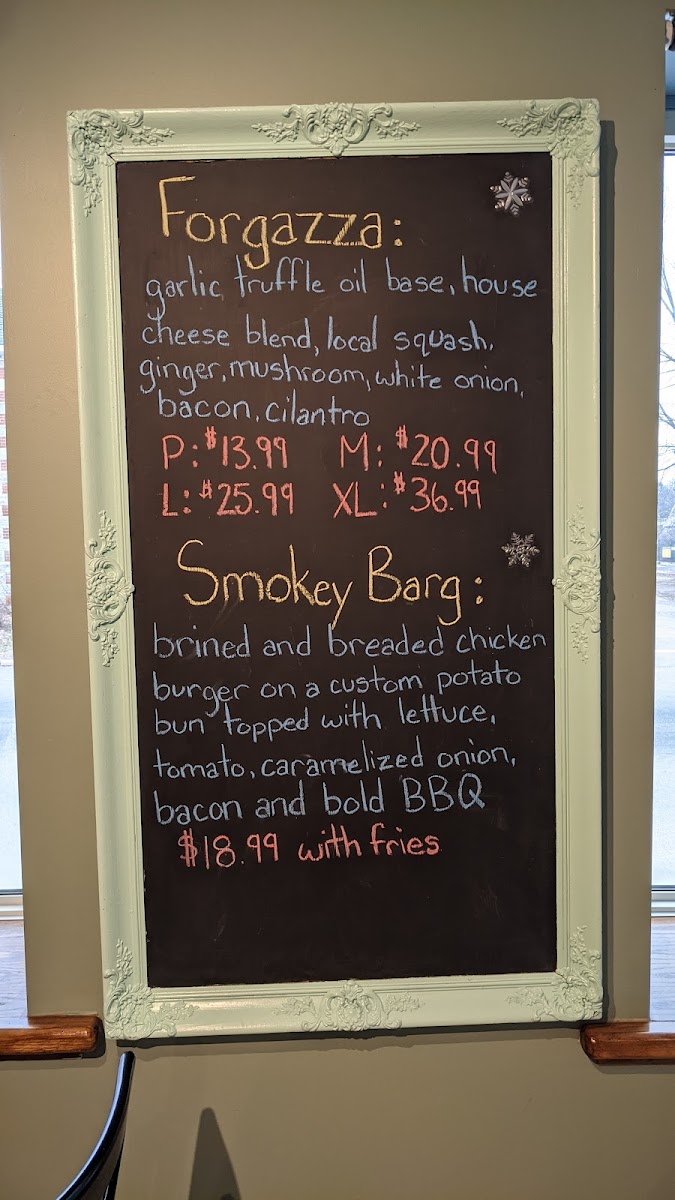 Forgazza:
garlic truffle oil base, house
cheese blend, local squash,
ginger, mushroom, white onion,
bacon, cilantro
P: $13.99 M: $20.99
L: $25.99 XL: $36.99
Smokey Barg:
brined and breaded chicken
burger on a custom potato
bun topped with lettuce,
tomato, caramelized onion,
bacon and bold BBQ
$18.99 with fries